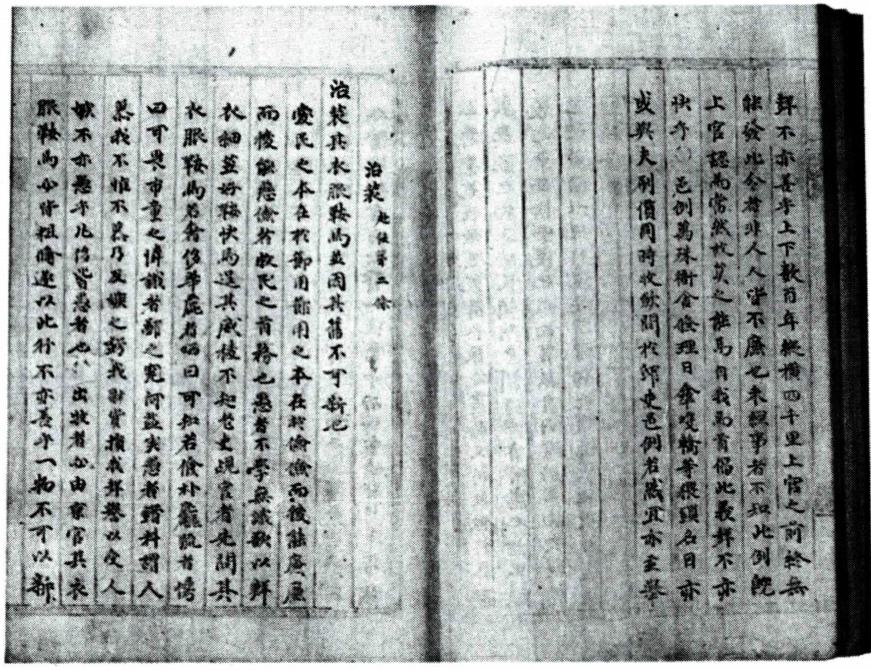 鮮不亦善乎上下數百年縱橫四千里上官之前終無
能發此令者非人人皆不廉也未經事者不知此例旣
上官認爲當然故莫之能焉自我焉首倡此義鮮不亦
快乎○邑例萬殊衙舍修理日
或與夫刷價同時收斂問於邸吏邑例若然宜亦並擧
治裝 赴任第二條
治裝其衣服鞍馬並因其舊不可新也
愛民之本在於節用節用之本在於儉儉而後能廉廉
而後能慈儉者牧民之首務也愚者不學無識欲以鮮
衣細笠好鞍快馬逞其威稜不知老吏覘官者先問其
衣服鞍馬若奢侈華靡者哂曰可知若儉朴麤敝者愕
曰可畏市童之憚識者鄙之究何益矣愚者錯料謂人
慕我不惟不慕乃且嫉之虧我財貲損我鮮譽以受人
嫉不亦愚乎凡侈皆愚者也○出牧者必由京官其衣
服鞍馬必皆粗備遂以此行不亦善乎一物不可以新